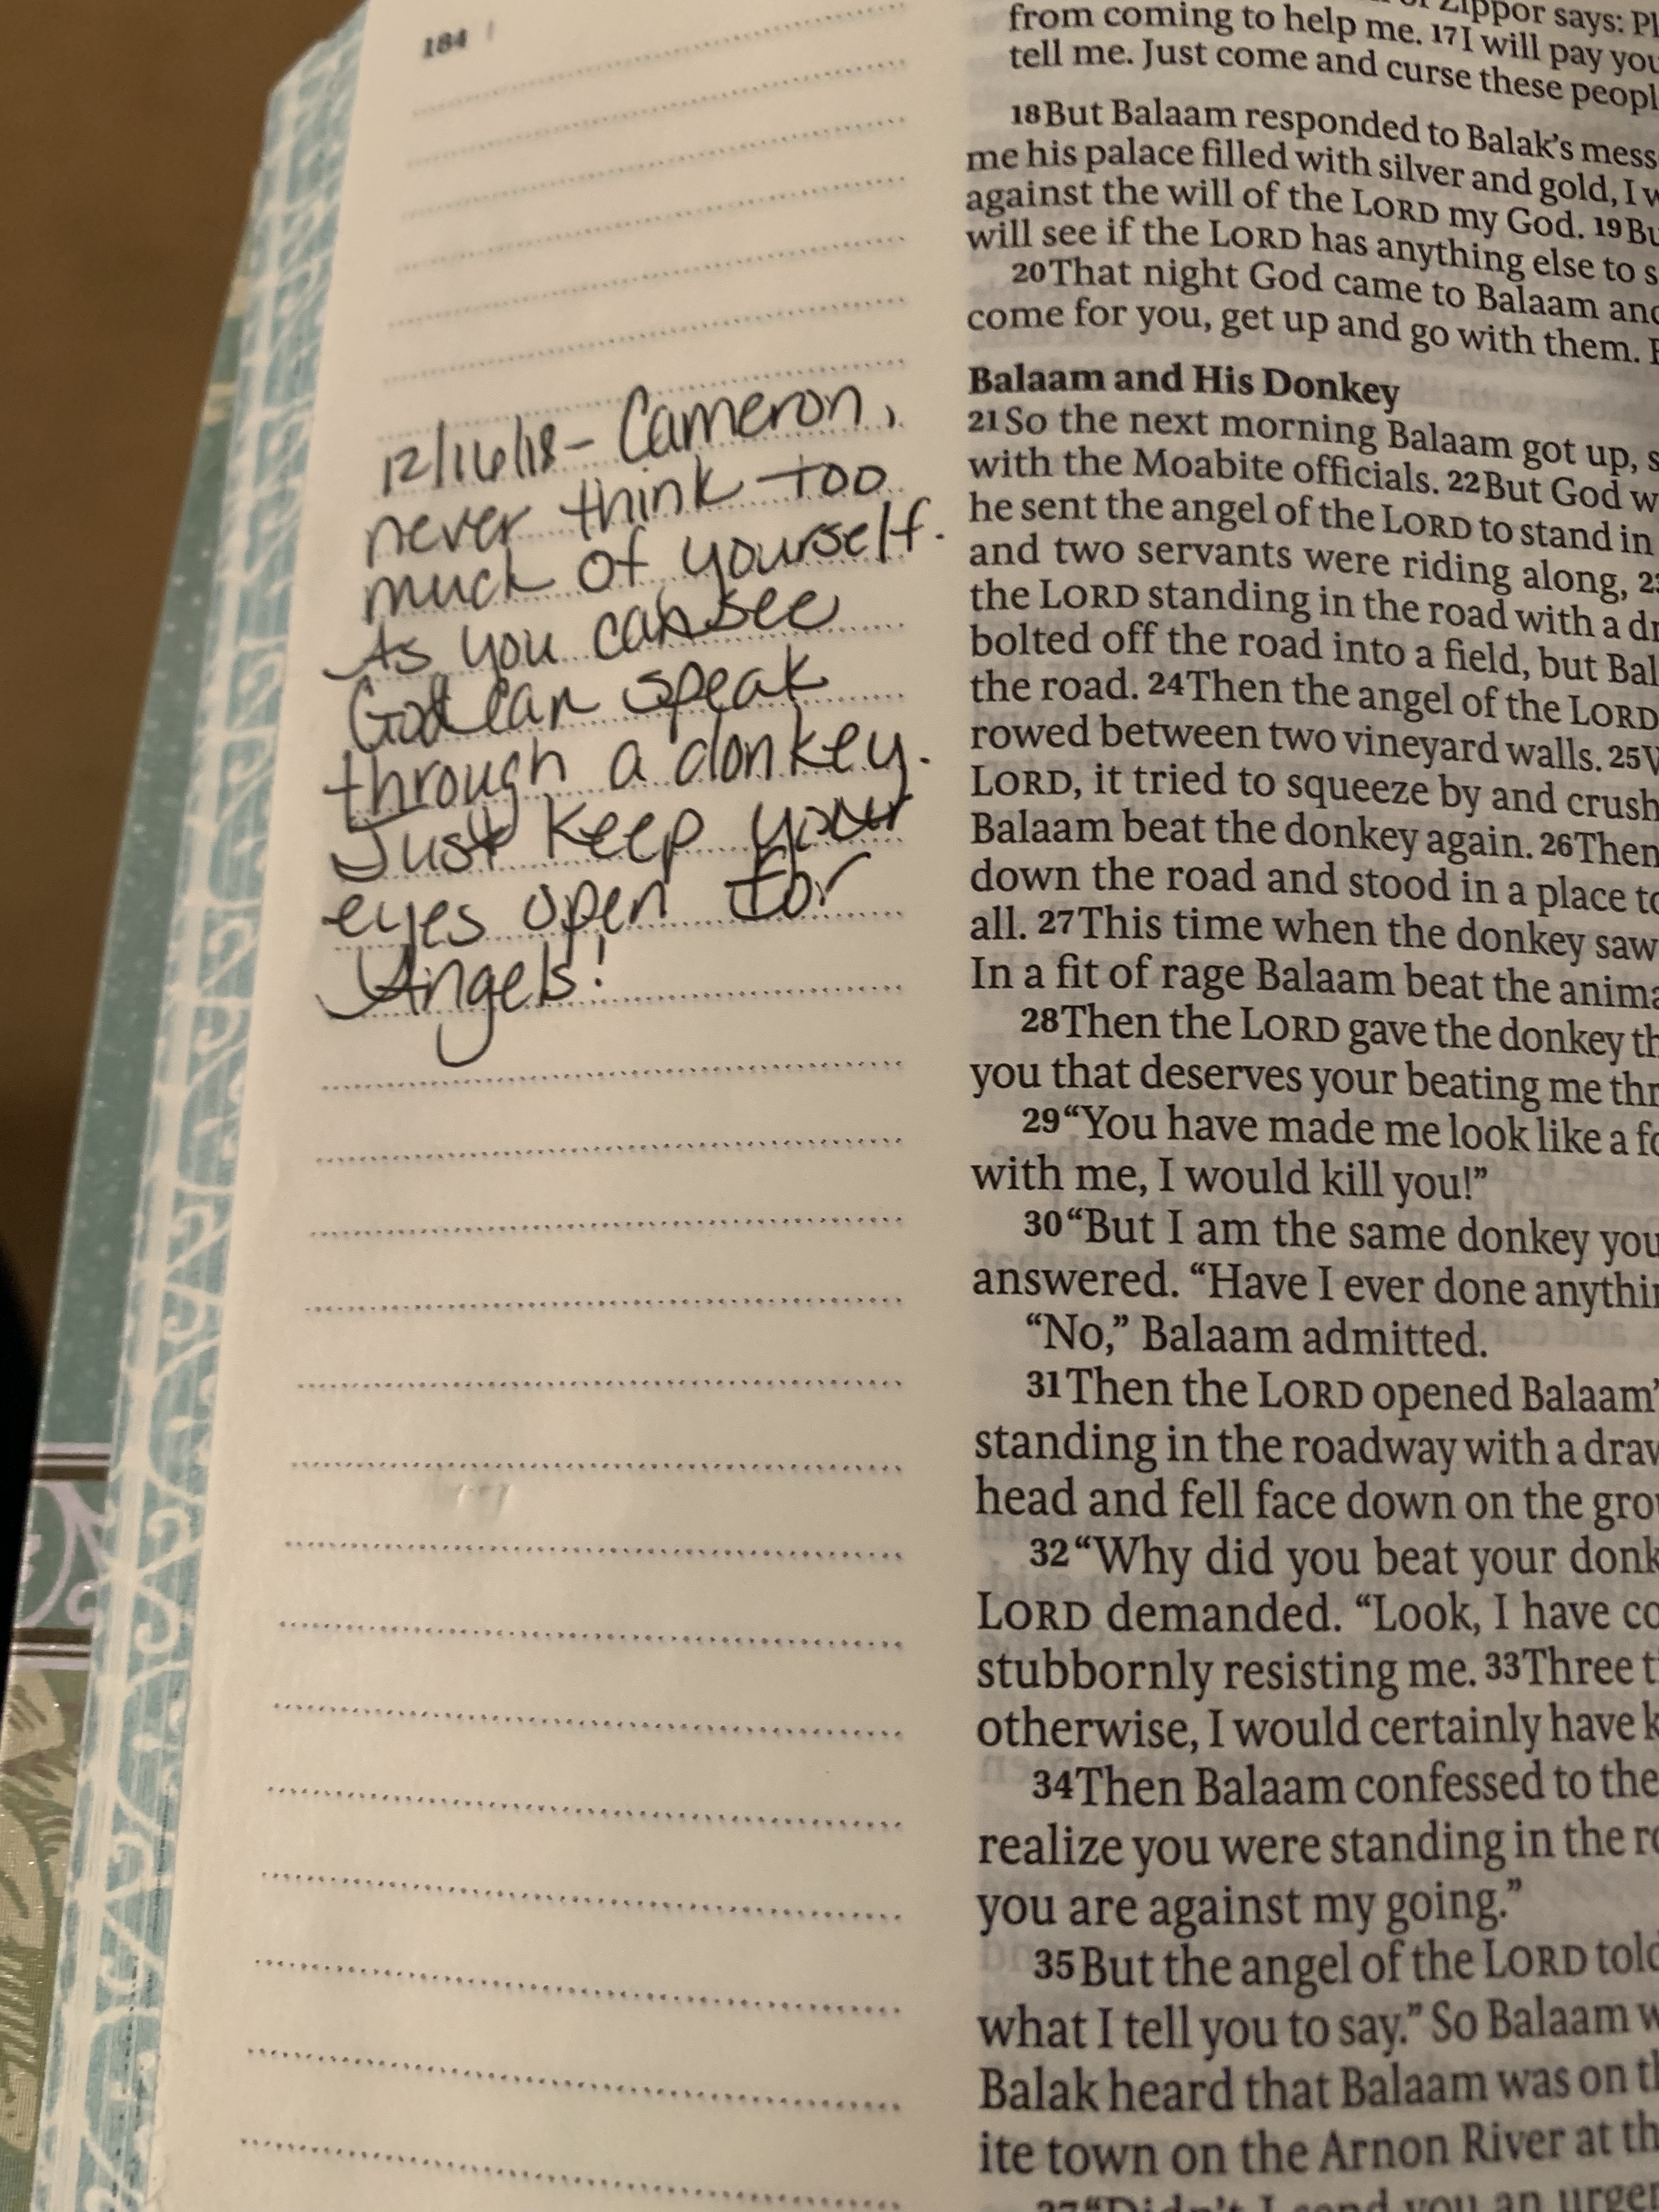 184
12/16/18 - Cameron,
never think too
much of yourself.
As you can see
God can speak
through a donkey.
Just keep your
eyes open for
Angels!
of Zippor says: Pl
from coming to help me. 17 I will pay you
tell me. Just come and curse these peopl
18 But Balaam responded to Balak's mess
me his palace filled with silver and gold, I w
against the will of the LORD my God. 19 Bu
will see if the LORD has anything else to s
20 That night God came to Balaam and
come for you, get up and go with them.
Balaam and His Donkey
21 So the next morning Balaam got up, s
with the Moabite officials. 22 But God w
he sent the angel of the LORD to stand in
and two servants were riding along, 23
the LORD standing in the road with a dr
bolted off the road into a field, but Bal
the road. 24 Then the angel of the LORD
rowed between two vineyard walls. 25 W
LORD, it tried to squeeze by and crush
Balaam beat the donkey again. 26 Then
down the road and stood in a place to
all. 27 This time when the donkey saw
In a fit of rage Balaam beat the anima
28 Then the LORD gave the donkey th
you that deserves your beating me thr
29 “You have made me look like a fo
with me, I would kill you!”
30 “But I am the same donkey you
answered. “Have I ever done anythin
“No,” Balaam admitted.
31 Then the LORD opened Balaam’
standing in the roadway with a draw
head and fell face down on the grou
32 “Why did you beat your donk
LORD demanded. “Look, I have co
stubbornly resisting me. 33 Three ti
otherwise, I would certainly have k
34 Then Balaam confessed to the
realize you were standing in the ro
you are against my going.”
35 But the angel of the LORD told
what I tell you to say.” So Balaam w
Balak heard that Balaam was on th
ite town on the Arnon River at th
37 “Didn’t I send you an urgen